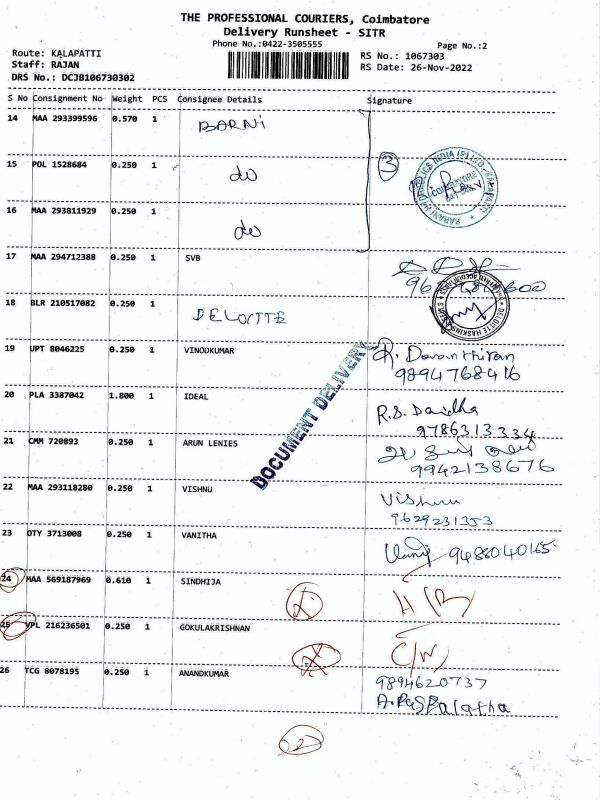 THE PROFESSIONAL COURIERS, Coimbatore
Delivery Runsheet - SITR
Phone No.:0422-3505555
Page No.:2
Route: KALAPATTI
Staff: RAJAN
DRS No.: DCJB106730302
RS No.: 1067303
RS Date: 26-Nov-2022
S No Consignment No Weight PCS Consignee Details Signature
14 MAA 293399596 0.570 1 BARNI
15 POL 1528684 0.250 1 do
3
16 MAA 293811929 0.250 1 do
17 MAA 294712388 0.250 1 SVB
18 BLR 210517082 0.250 1 DELOITTE
DELOITTE HASKINS
19 UPT 8046225 0.250 1 VINODKUMAR
9894768416
DOCUMENT DELIVERY
20 PLA 3387042 1.800 1 IDEAL
9786313334
21 CMM 720893 0.250 1 ARUN LENIES
9942138676
22 MAA 293118280 0.250 1 VISHNU Vishnu
9629231353
23 OTY 3713008 0.250 1 VANITHA 9488040165
24 MAA 569187969 0.610 1 SINDHIJA
25 VPL 216236501 0.250 1 GOKULAKRISHNAN
26 TCG 8078195 0.250 1 ANANDKUMAR 9894620737
2